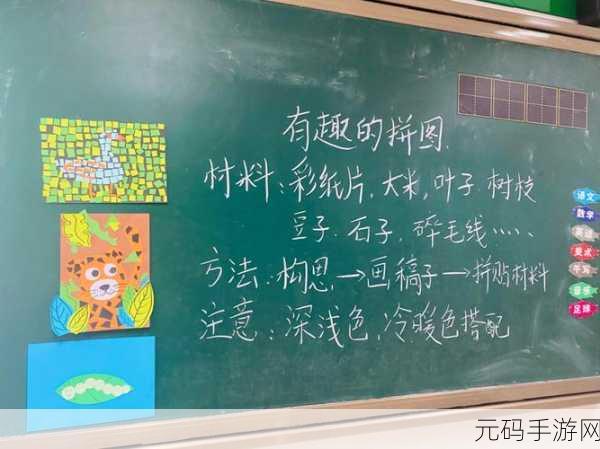 有趣的拼图.
材料:彩纸片,大米,叶子.树枝
豆子.石子,碎毛线……
方法:构思,→画稿子→拼贴材料
注意:深浅色,冷暖色搭配
语文
数学
英语
美术
书写
音乐
足球
元码手游网